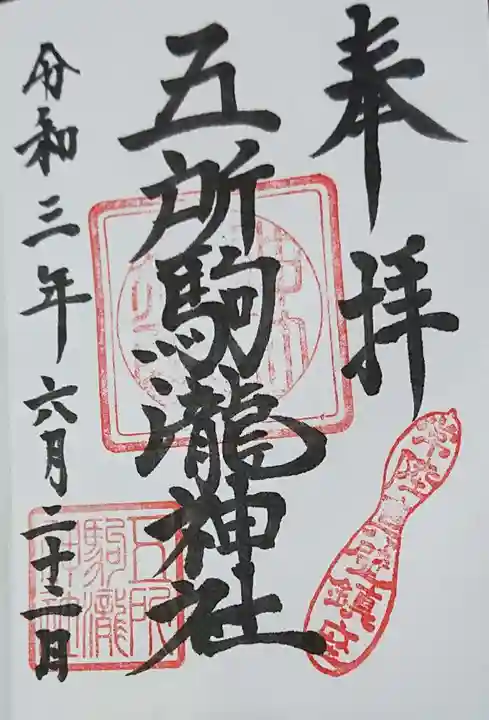 奉拝
五所駒瀧神社
令和三年六月二十二日
五所
駒瀧
神社